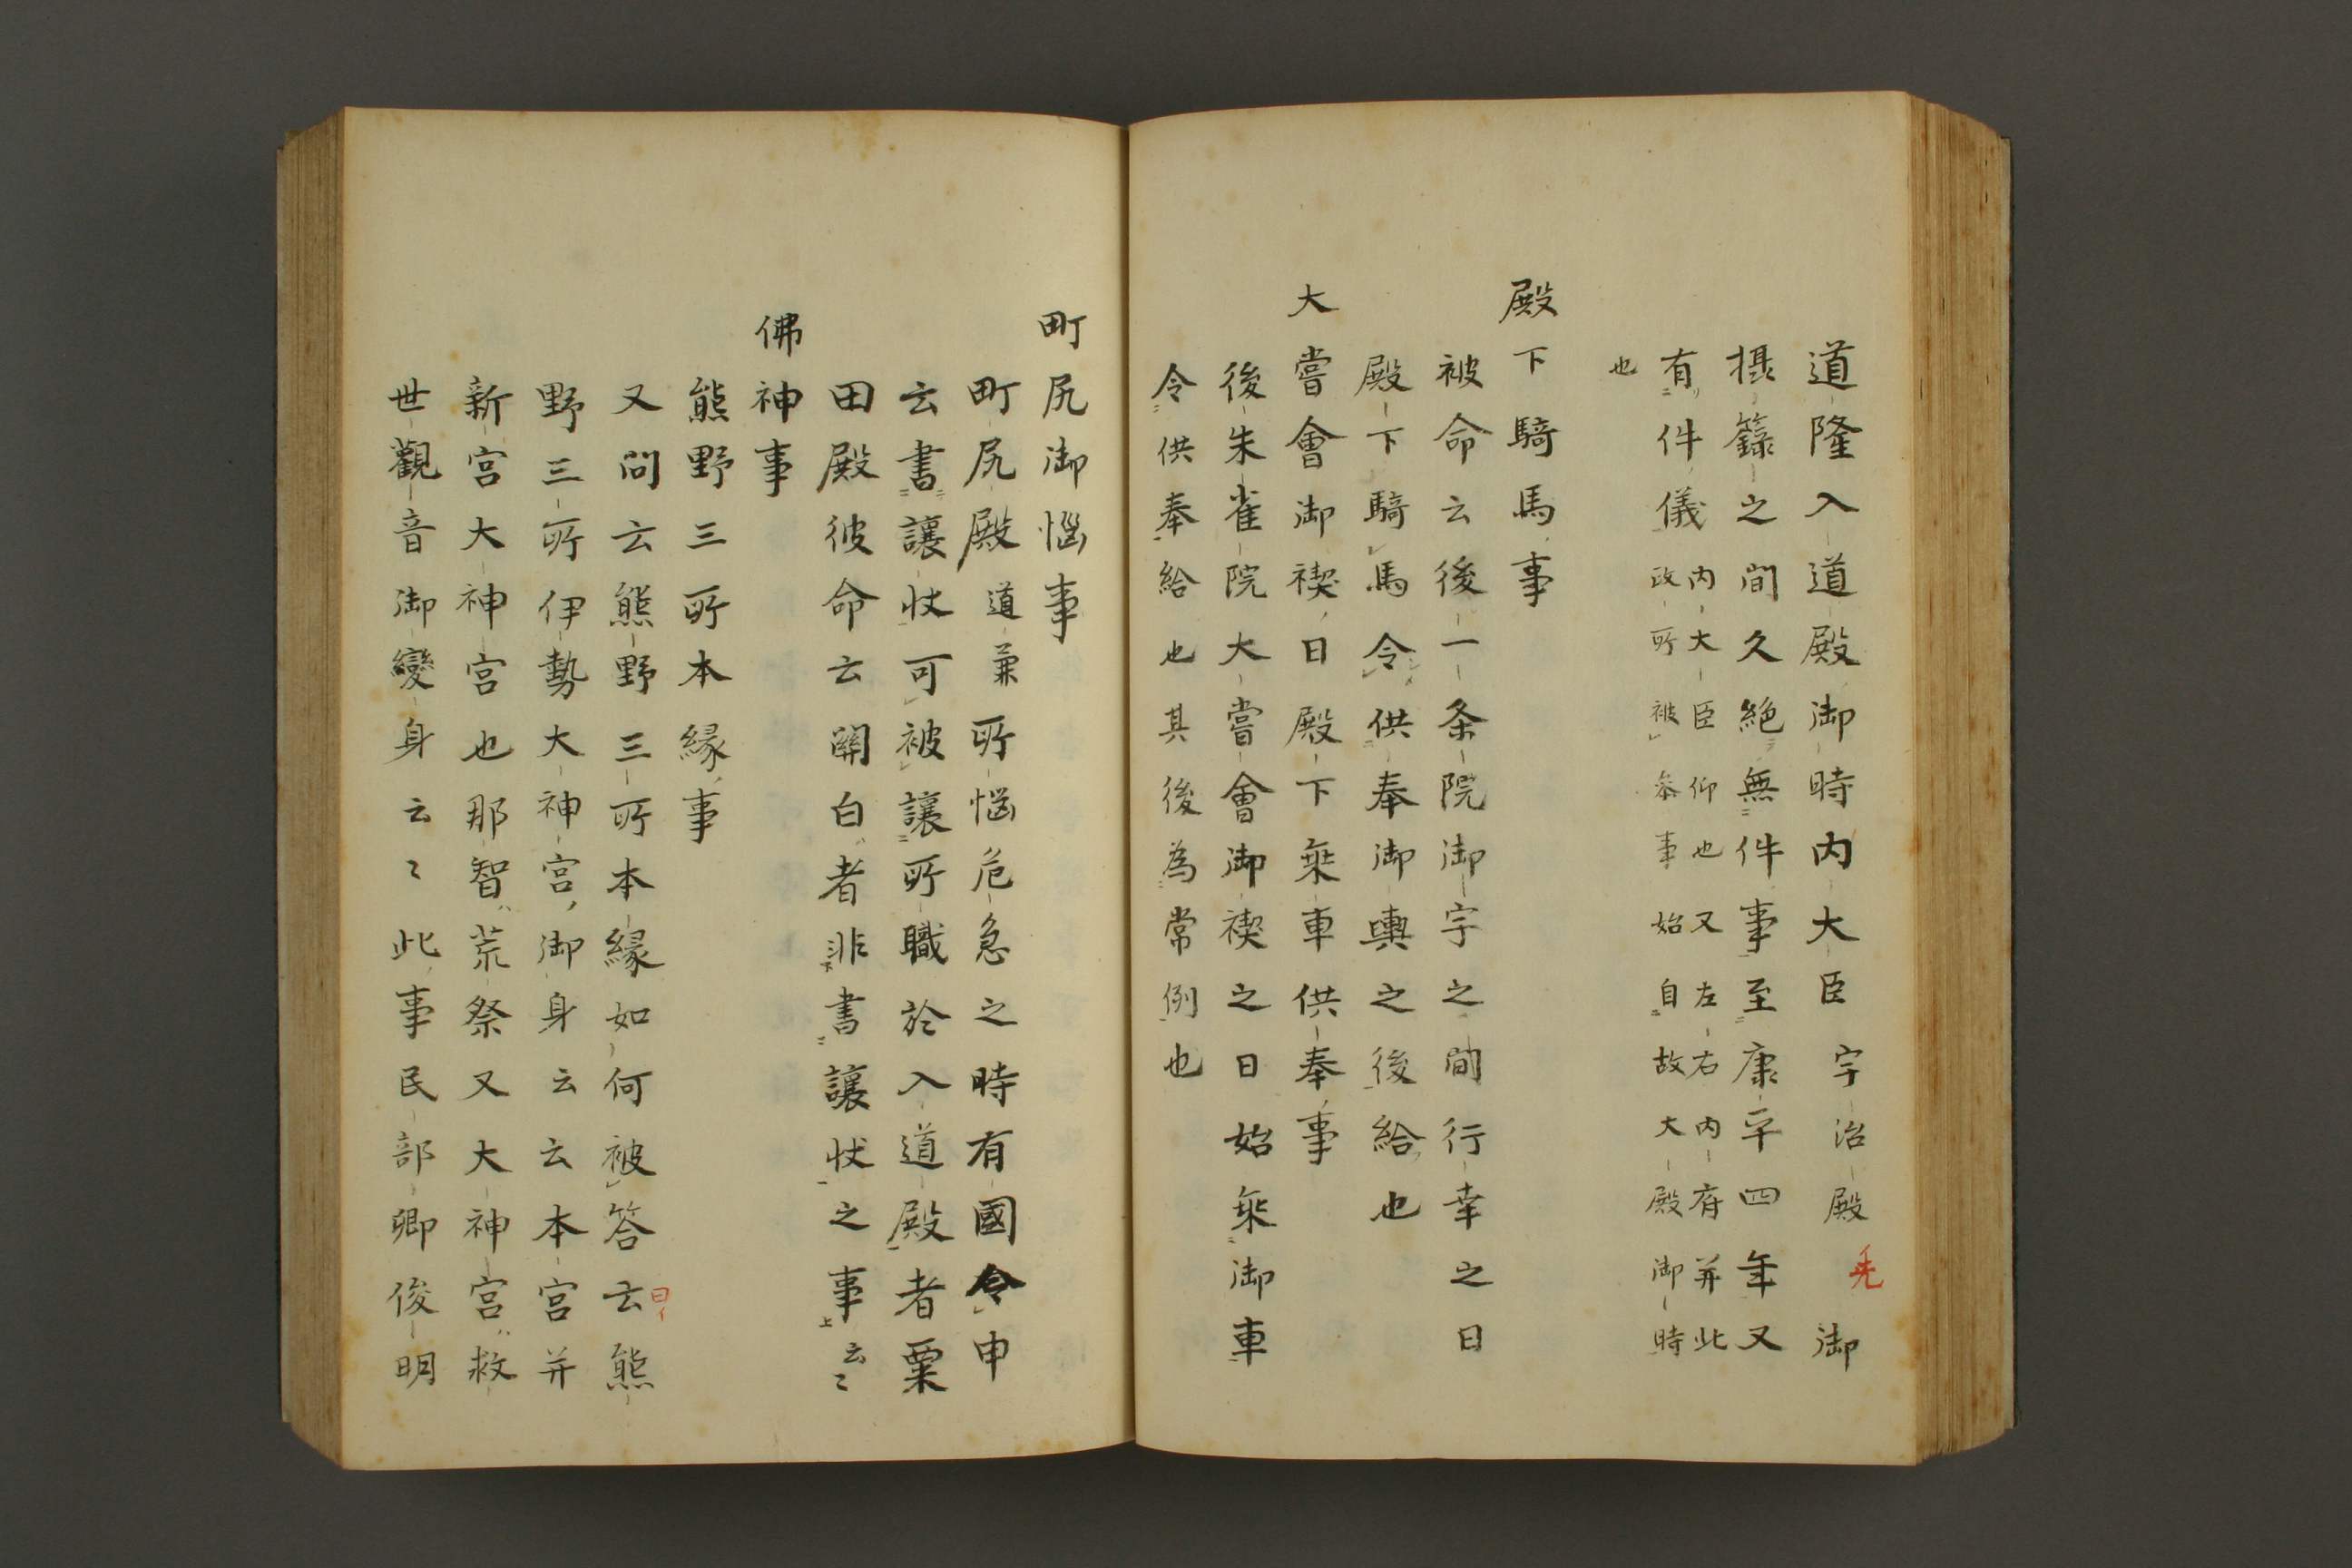 道隆入道殿御時内大臣宇治殿御
旡
摂籙之間久絶無件事至康平四年又
有件儀内大臣仰也又左右内府并此
政所被叅事始自故大殿御時
也
殿下騎馬事
被命云後一条院御宇之間行幸之日
殿下騎馬令供奉御輿之後給也
大嘗會御禊日殿下乗車供奉事
後朱雀院大嘗會御禊之日始乗御車
令供奉給也其後為常例也
町尻御惱事
町尻殿道兼所惱危急之時有國令申
云書讓状可被讓所職於入道殿者粟
田殿被命云關白者非書讓状之事云〻
佛神事
熊野三所本縁事
又問云熊野三所本縁如何被答云熊
曰イ
野三所伊勢大神宮御身云云本宮并
新宮大神宮也那智荒祭又大神宮救
世觀音御變身云〻此事民部卿俊明